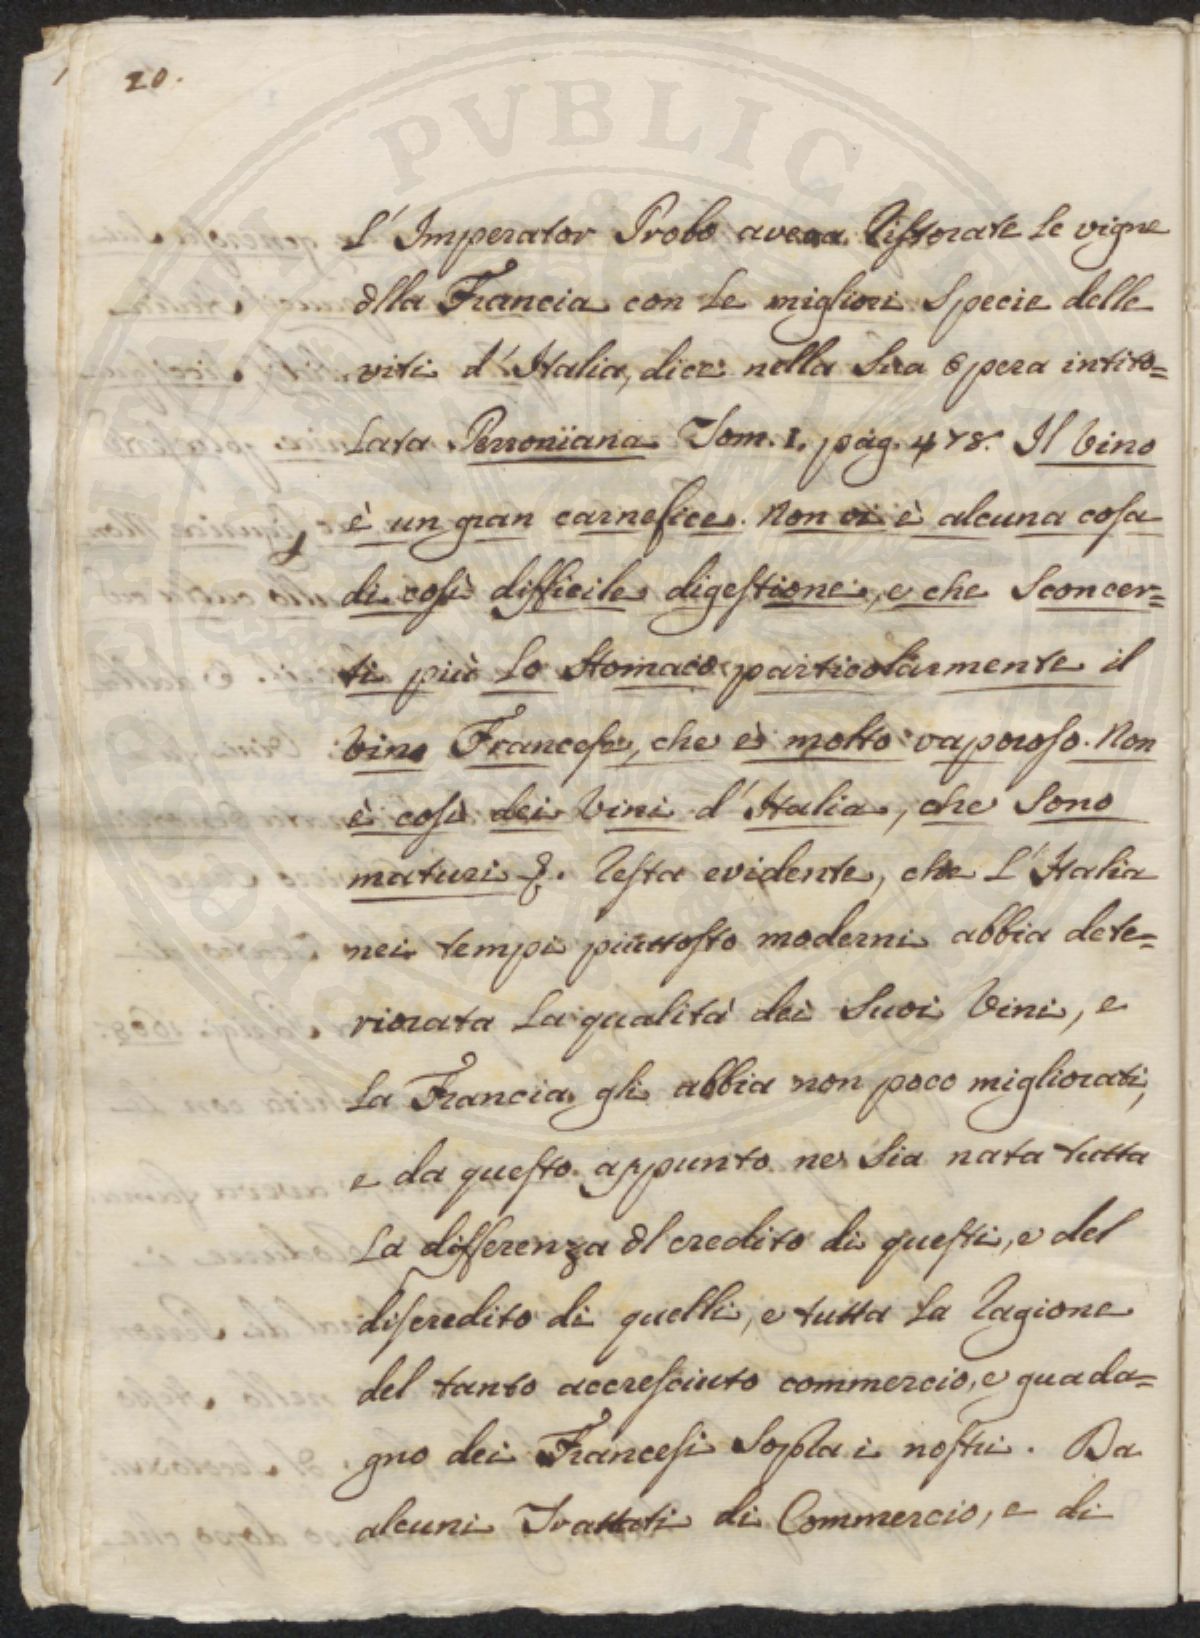 20.
L' Imperator Probo aveva ristorate le vigne
dlla Francia con le migliori specie delle
viti d' Italia, dice nella sua opera intito=
lata Perroniana Tom. I. pag. 478. Il vino
è un gran carnefice. Non vi è alcuna cosa
di così difficile digestione, e che sconcer=
ti più lo stomaco particolarmente il
vino Francese, che è molto vaporoso. Non
è così dei vini d' Italia, che sono
maturi &. Resta evidente, che l' Italia
nei tempi piuttosto moderni abbia dete=
riorata la qualità dei suoi vini, e
la Francia gli abbia non poco migliorati,
e da questo appunto ne sia nata tutta
la differenza dl credito di questi, e del
discredito di quelli, e tutta la ragione
del tanto accresciuto commercio, e guada=
gno dei Francesi sopra i nostri. Da
alcuni Trattati di Commercio, e di